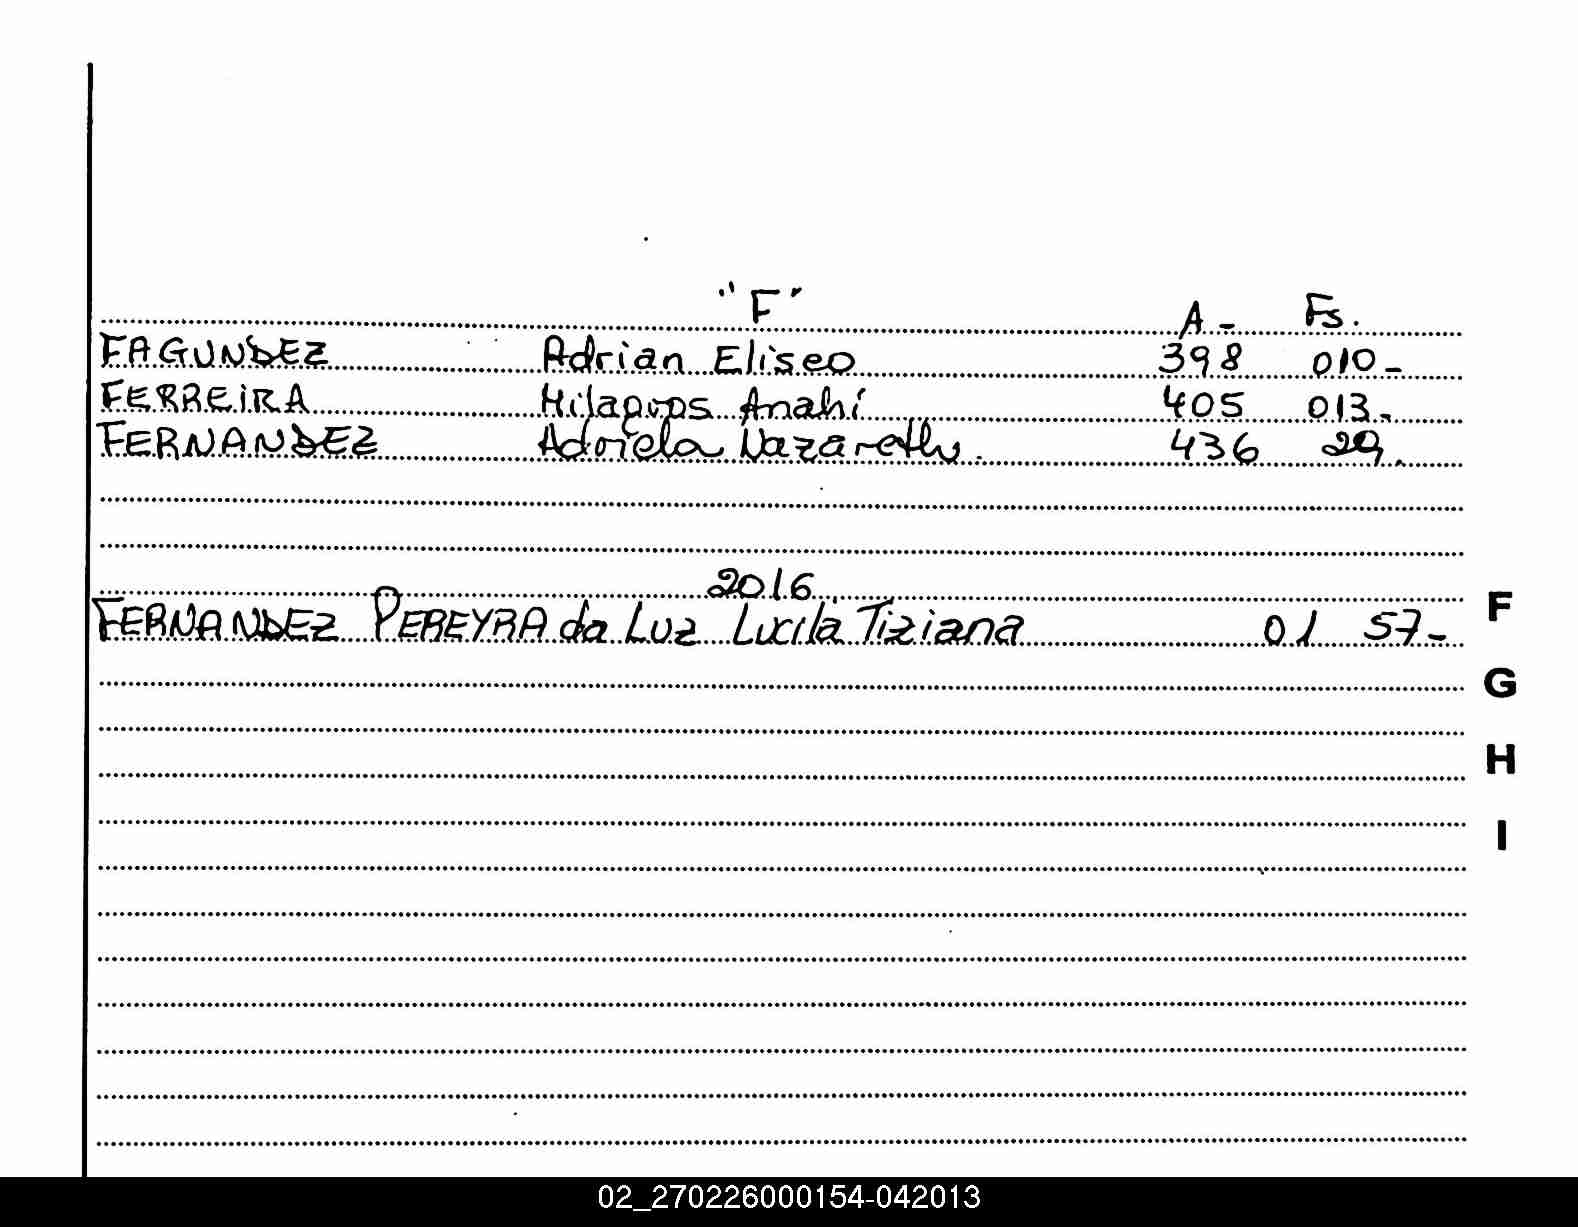 "F"
A - Fs.
FAGUNDEZ Adrian Eliseo 398 010-
FERREIRA Milagros Anahí 405 013-
FERNANDEZ Adriela Nazareth. 436 29.
2016
FERNANDEZ PEREYRA da Luz Lucila Tiziana 01 57-
F
G
H
I
02_270226000154-042013